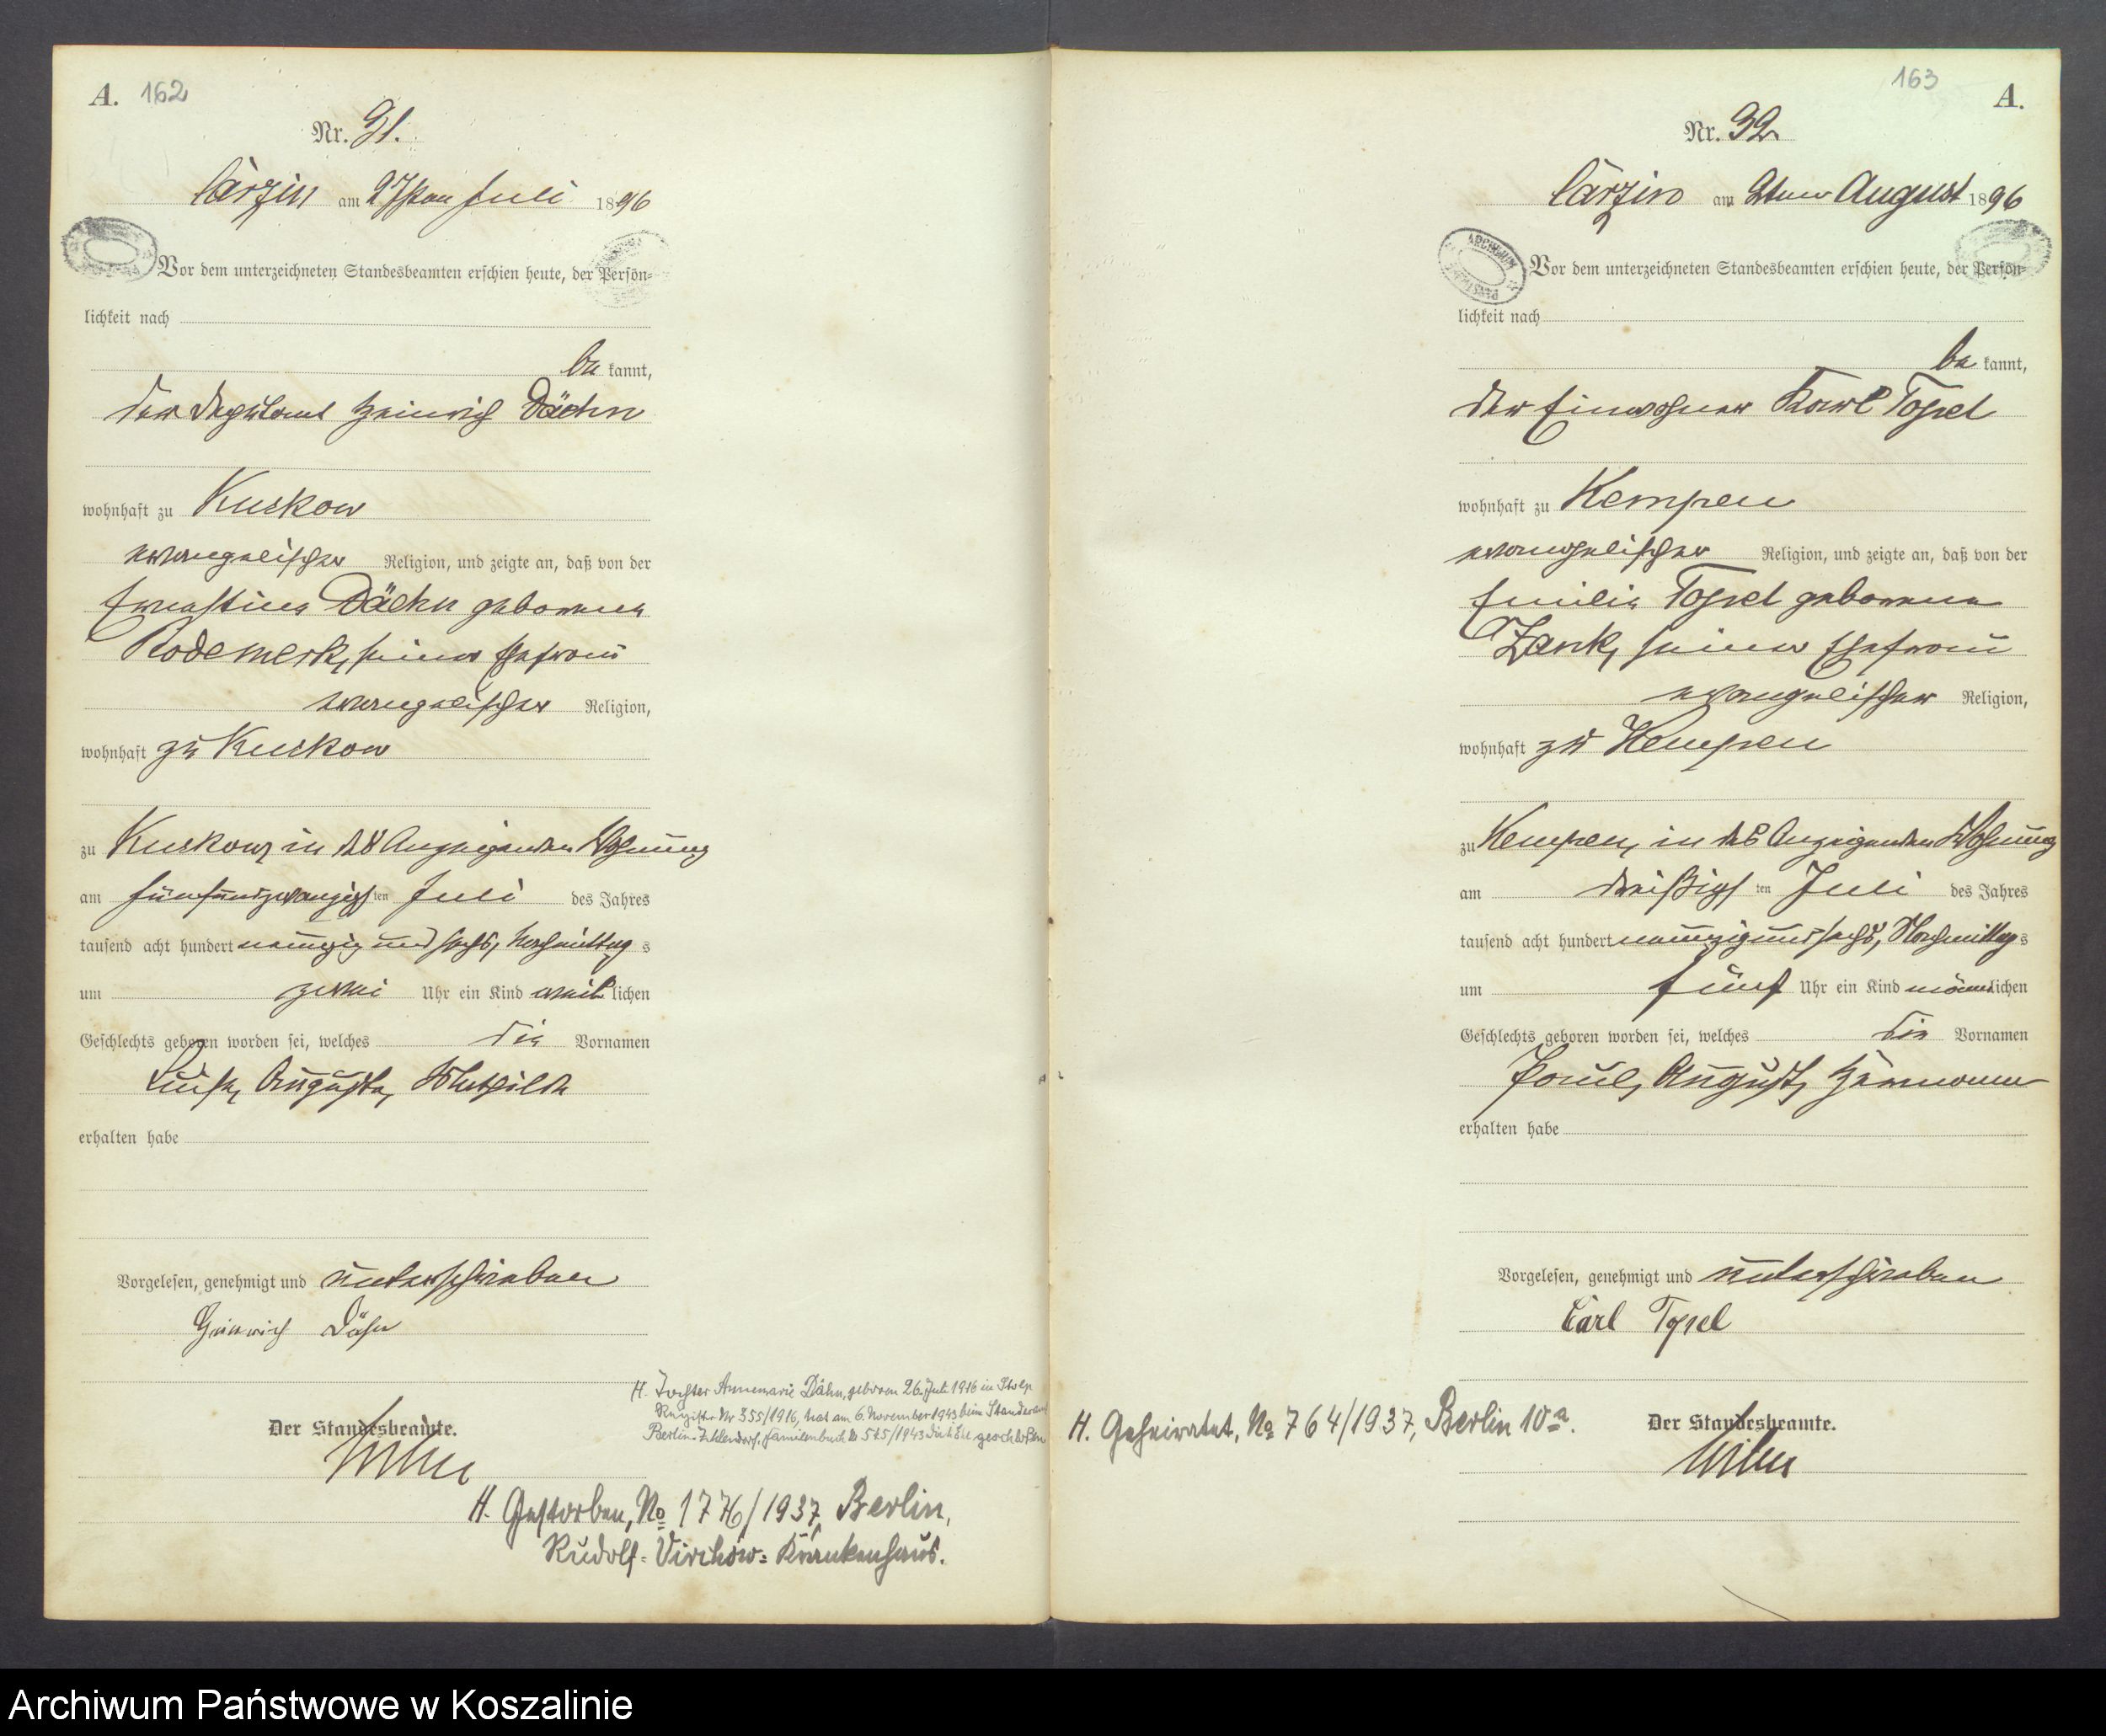 A. 162
Nr. 31.
Carzin am 27sten Juli 1896
Vor dem unterzeichneten Standesbeamten erschien heute, der Persön-
lichkeit nach
be kannt,
der Deputant Heinrich Dächn
wohnhaft zu Kuskow
evangelischer Religion, und zeigte an, daß von der
Ernestine Dächn geborene
Rodemerk, seiner Ehefrau
evangelischer Religion,
wohnhaft zu Kuskow
zu Kuskow, in des Anzeigenden Wohnung
am fünfundzwanzigsten Juli des Jahres
tausend acht hundert neunzig und sechs, Nachmittags
um zwei Uhr ein Kind weiblichen
Geschlechts geboren worden sei, welches die Vornamen
Luise, Auguste, Mathilde
erhalten habe
Vorgelesen, genehmigt und unterschrieben
Heinrich Dähn
Der Standesbeamte.
H. Tochter Annemarie Dähn, geboren 26. Juli 1916 in Stolp
Register Nr 355/1916, hat am 6. November 1943 beim Standesamt
Berlin-Zehlendorf, Familienbuch Nr 525/1943 die Ehe geschloßen
H. Gestorben, No 1776/1937, Berlin,
Rudolf-Virchow-Krankenhaus.
163 A.
Nr. 32
Carzin am 2ten August 1896
ARCHIWUM
Vor dem unterzeichneten Standesbeamten erschien heute, der Persön-
lichkeit nach
be kannt,
der Einwohner Karl Topel
wohnhaft zu Kempen
evangelischer Religion, und zeigte an, daß von der
Emilie Topel geborene
Zank, seiner Ehefrau
evangelischer Religion,
wohnhaft zu Kempen
zu Kempen, in des Anzeigenden Wohnung
am dreißigsten Juli des Jahres
tausend acht hundert neunzig und sechs, Nachmittags
um fünf Uhr ein Kind männlichen
Geschlechts geboren worden sei, welches die Vornamen
Paul, August, Hermann
erhalten habe
Vorgelesen, genehmigt und unterschrieben
Carl Topel
H. Geheiratet, No 764/1937, Berlin 10a.
Der Standesbeamte.
Archiwum Państwowe w Koszalinie